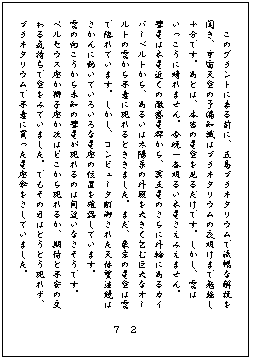 このプラントに来る前に、五島プラネタリウムで流暢な解説を
聞き、宇宙天空の予備知識はプラネタリウムの夜明けまで勉強し
十分です。あとは、本当の星空を見るだけです。しかし、雲は
いっこうに晴れません。今晩一番明るい木星さえみえません。
彗星は木星近くの微惑星群から、冥王星のさらに外輪にあるカイ
パーベルトから、あるいは太陽系の外縁を大きく包む巨大なオー
ルトの雲から不意に現れるとききました。まだ、東京の星空は雲
で隠れています。しかし、コンピュータ制御された天体望遠鏡は
さかんに動いていろいろな星座の位置を確認しています。
雲の向こうから未知の彗星が現れるのは間違いなさそうです。
ペルセウス座か獅子座か次はどこから現れるか、期待と不安の交
わる気持ちで空をみていました。でもその日はとうとう現れず、
プラネタリウムで不意に買った星座絵をさしていました。
72